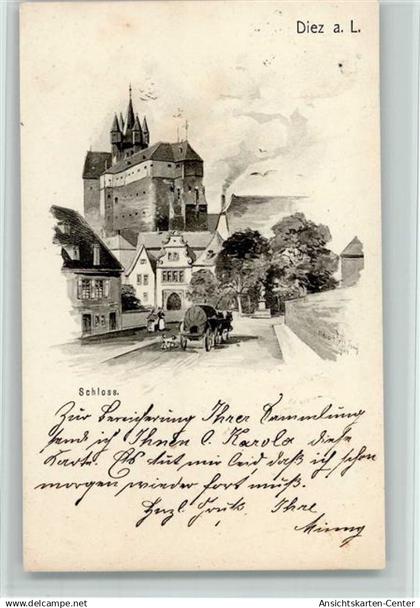 Diez a. L.
Schloss.
Zur Bereicherung Ihrer Sammlung
send ich Ihnen l. Karola diese
Karte. Es tut mir leid daß ich schon
morgen wieder fort muß.
Herzl. Gruß. Ihre
Ansichtskarten-Center